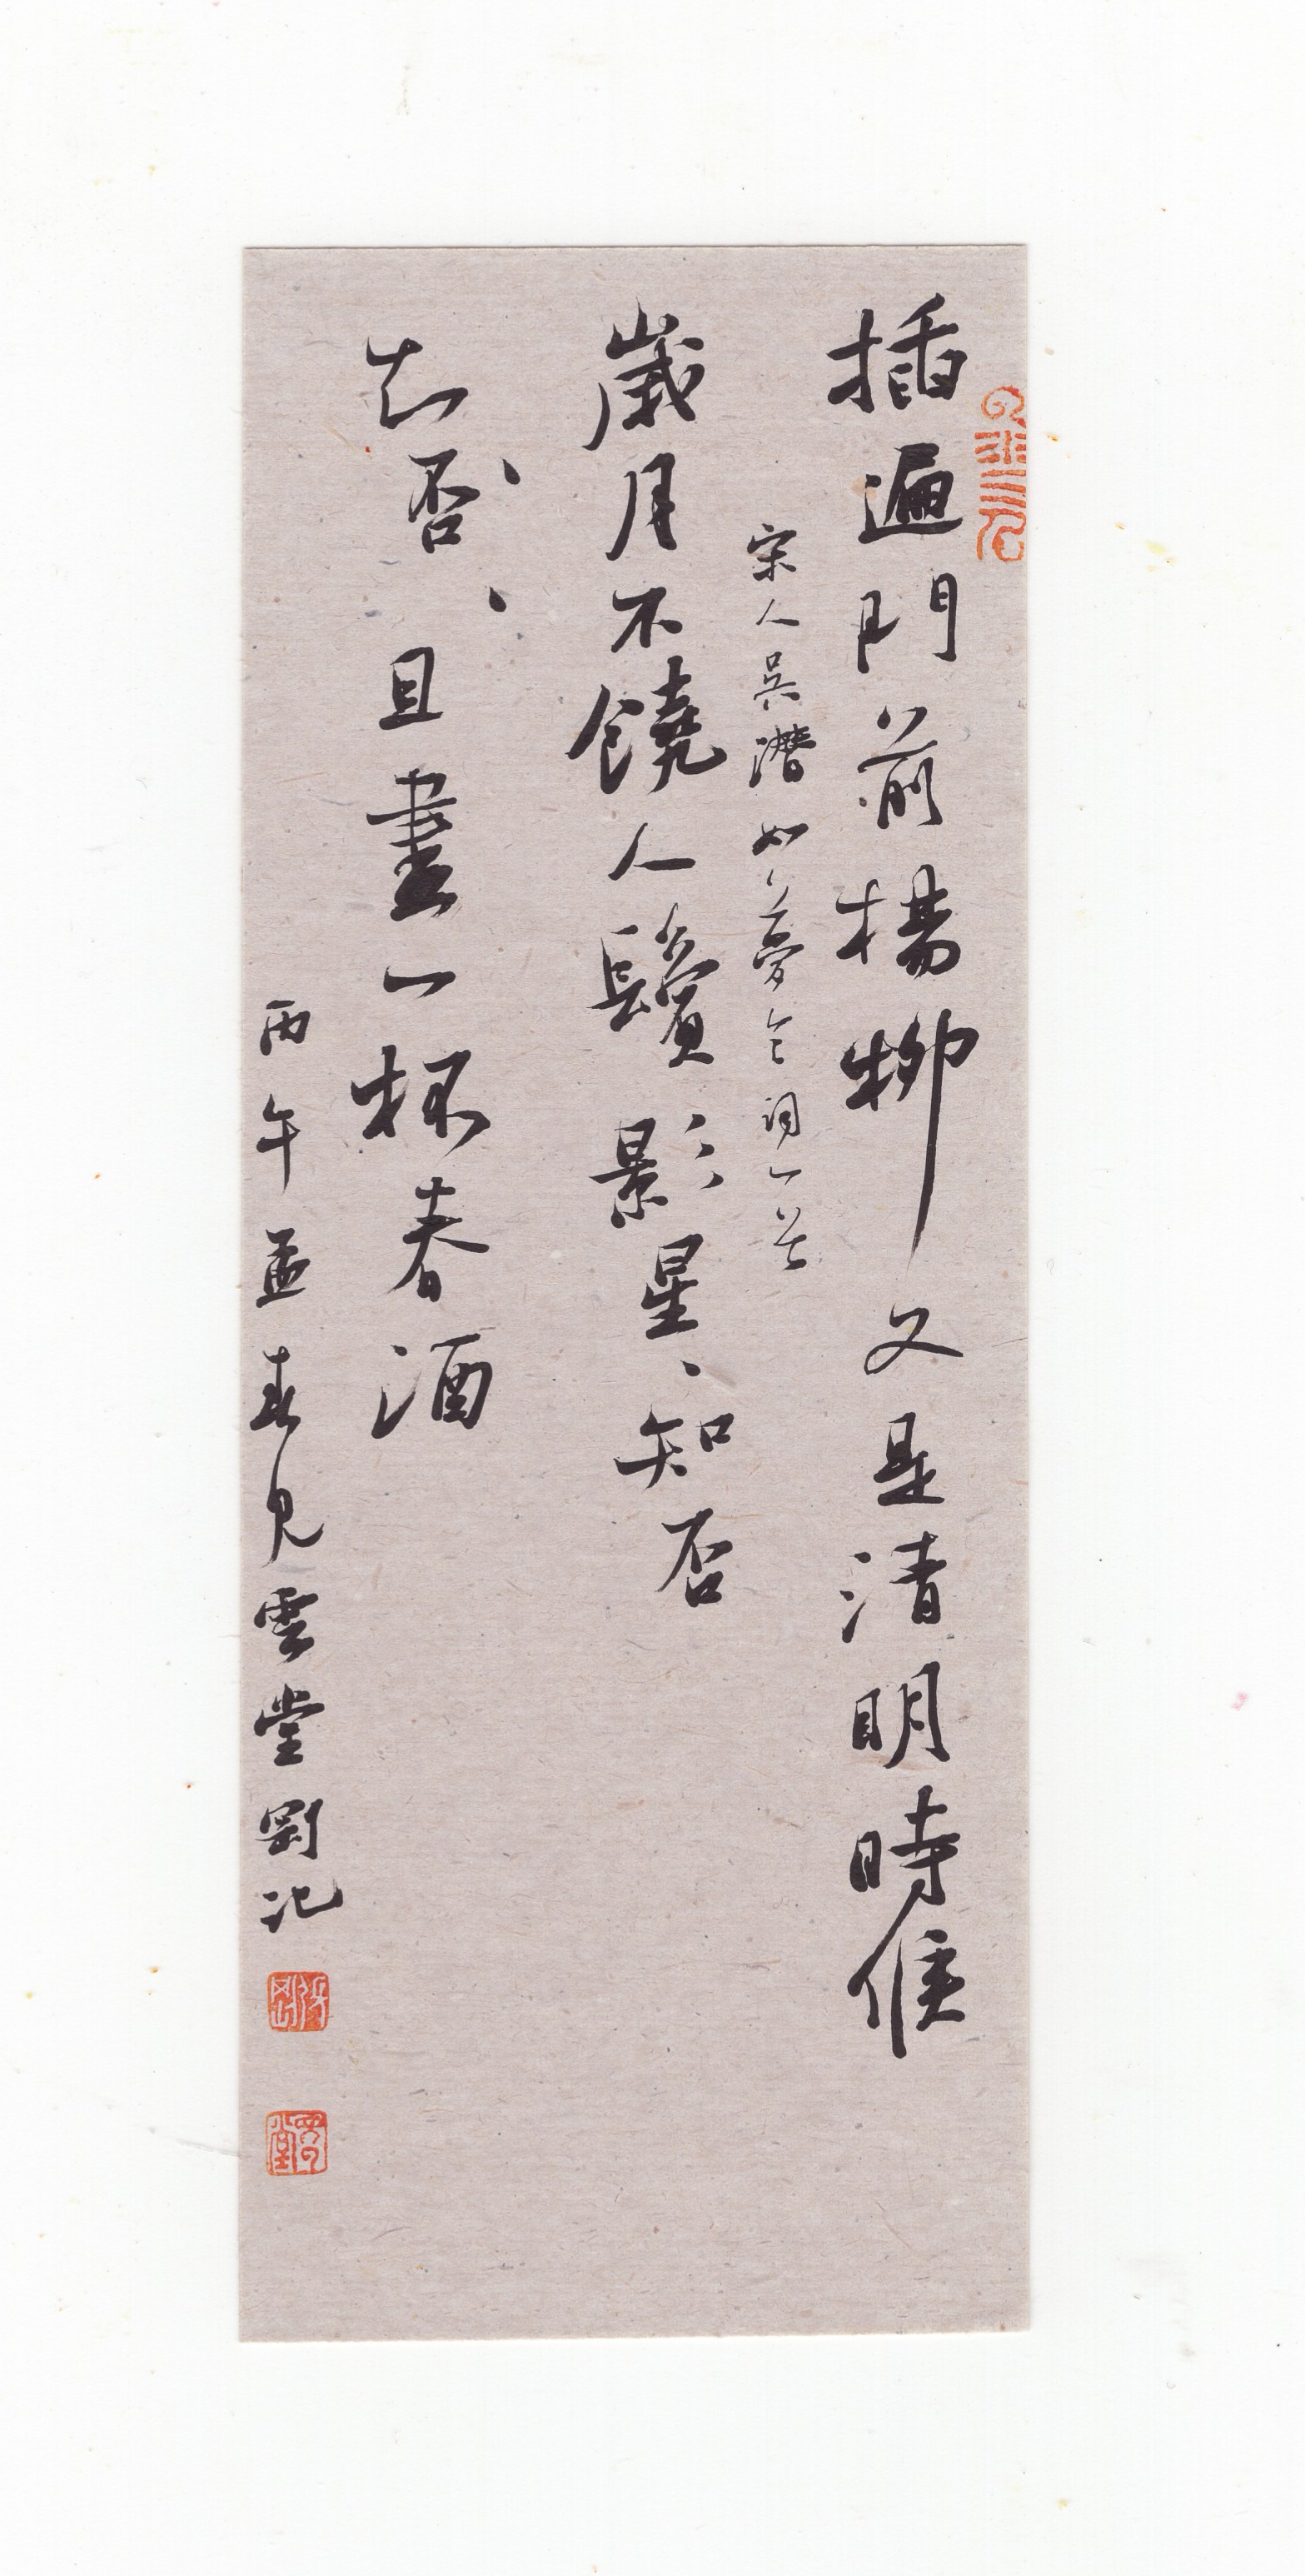 插遍門前楊柳又是清明時候
宋人吳潛如夢令詞一首
歲月不饒人鬢影星、知否
知、否、且盡一杯春酒
丙午孟春見雲堂剛記